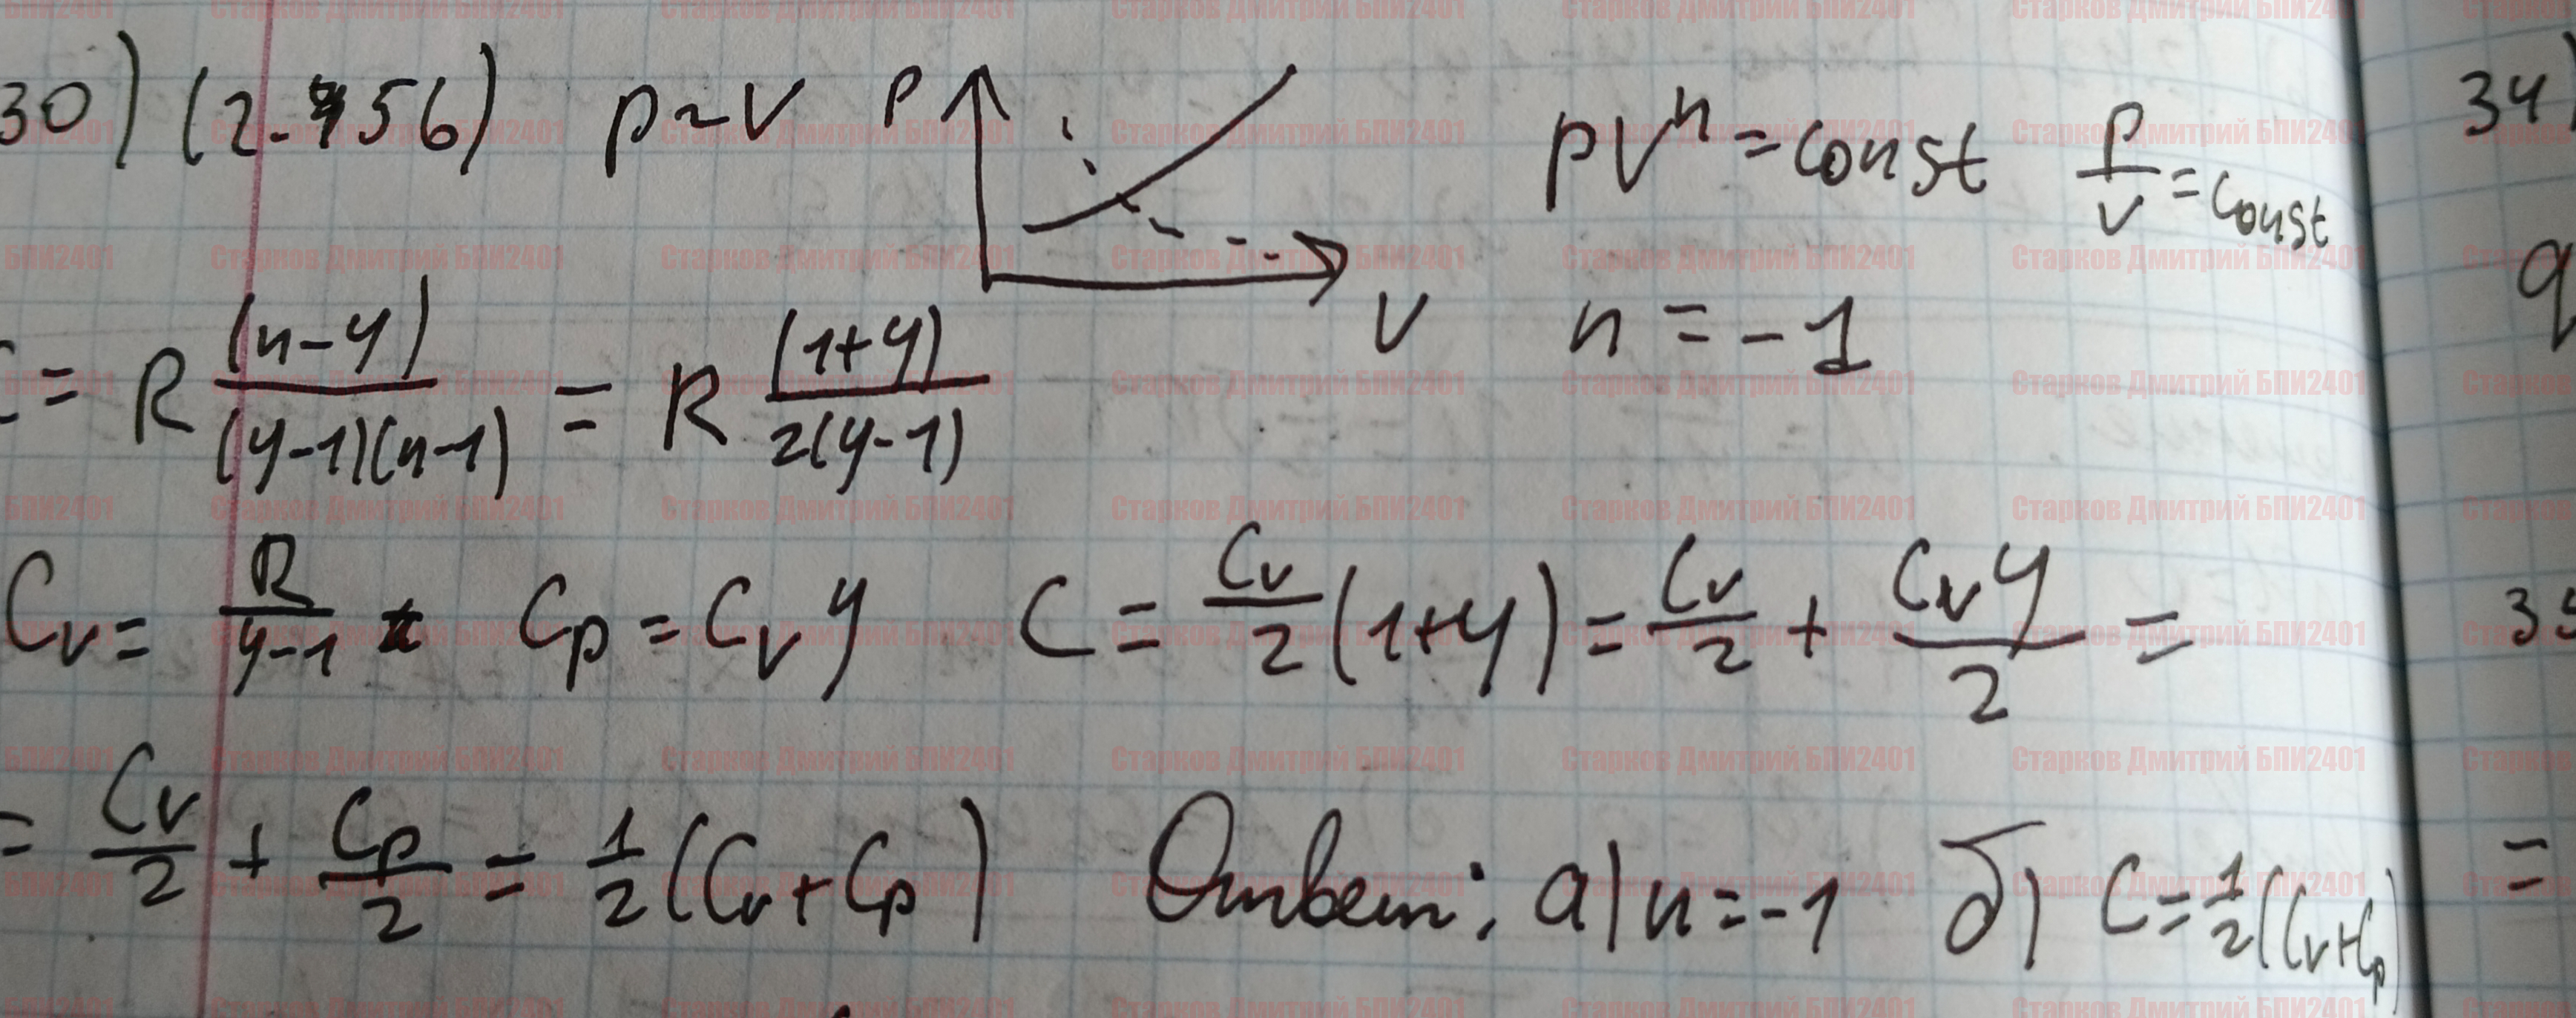 30) (2.456) p~V P V pVⁿ = const p/V = const
n = -1
= R (n-γ)/((γ-1)(n-1)) = R (1+γ)/(2(γ-1))
Cv = R/(γ-1) Cp = Cv γ C = Cv/2 (1+γ) = Cv/2 + Cvγ/2 =
= Cv/2 + Cp/2 = 1/2 (Cv+Cp) Ответ: а) n=-1 б) C=1/2(Cv+Cp)
34)
q
35
=
Старков Дмитрий БПИ2401